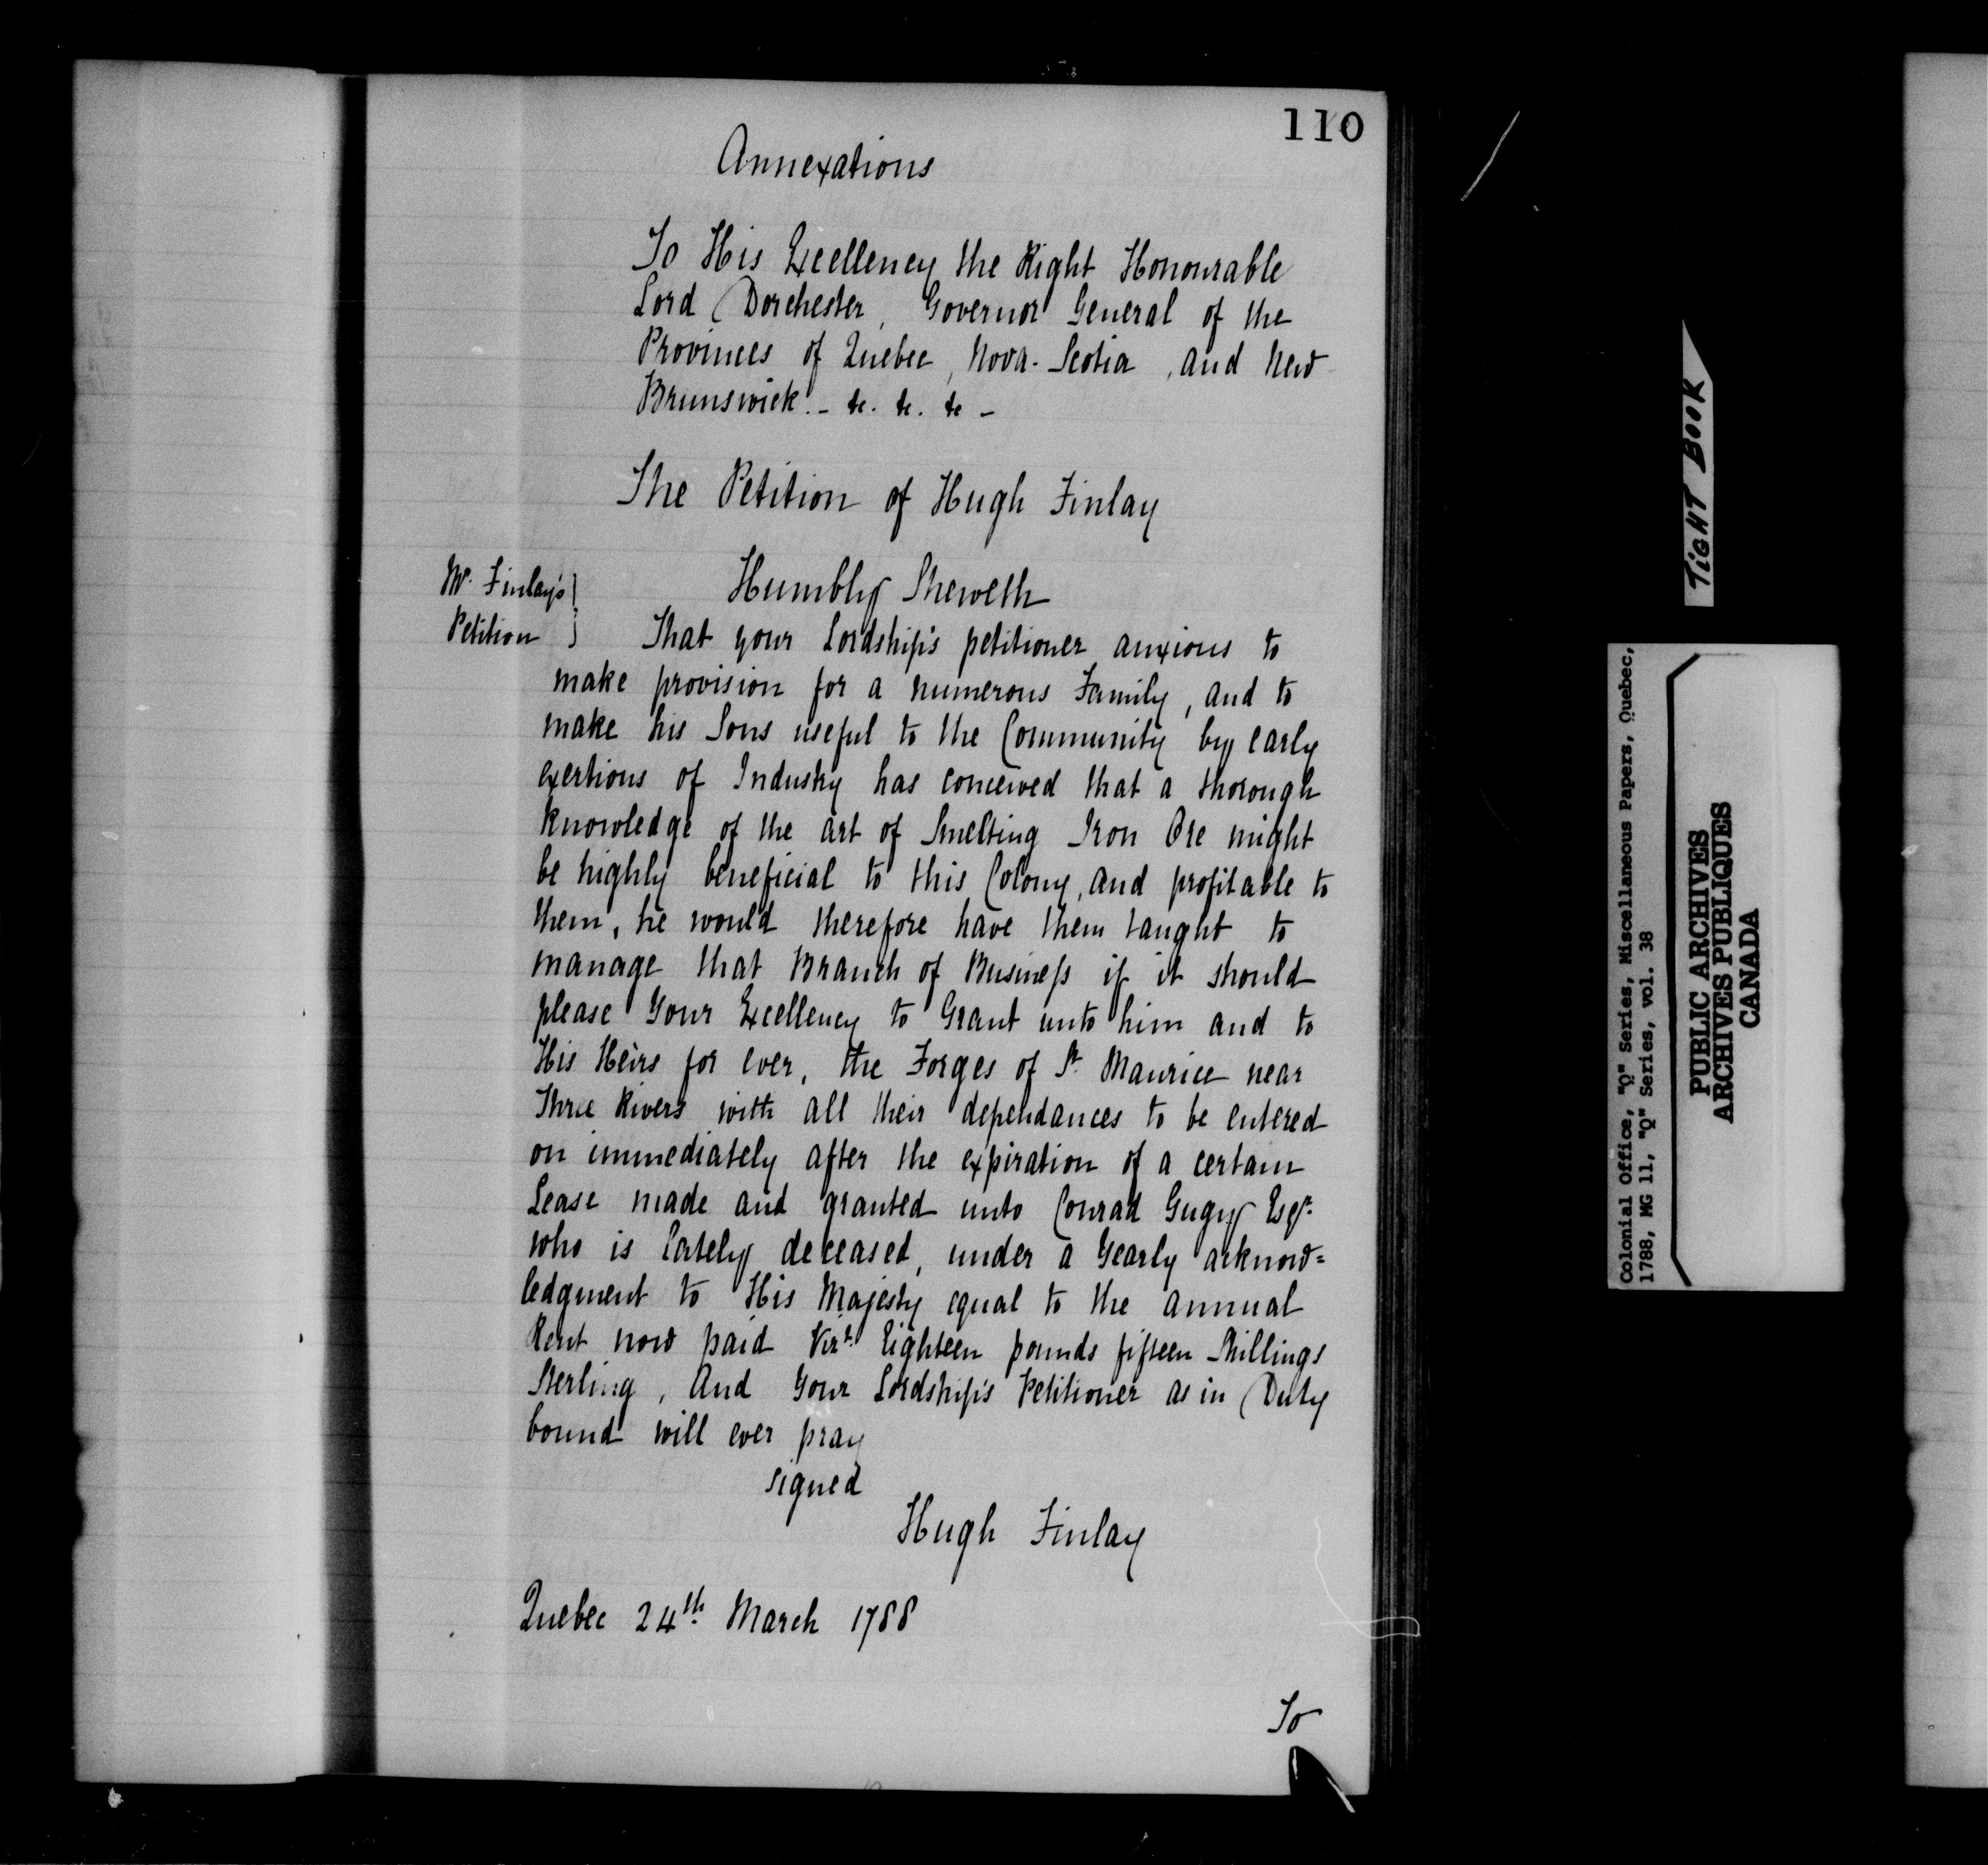 110
Annexations
To His Excellency the Right Honourable
Lord Dorchester, Governor General of the
Provinces of Quebec, Nova-Scotia, and New
Brunswick. - &c. &c. &c -
The Petition of Hugh Finlay
Mr. Finlay's
Petition
Humbly Sheweth
That your Lordship's petitioner anxious to
make provision for a numerous Family, and to
make his Sons useful to the Community by early
exertions of Industry has conceived that a thorough
knowledge of the art of Smelting Iron Ore might
be highly beneficial to this Colony, and profitable to
them, he would therefore have them taught to
manage that Branch of Business if it should
please Your Excellency to Grant unto him and to
His Heirs for ever, the Forges of St. Maurice near
Three Rivers with all their dependances to be entered
on immediately after the expiration of a certain
Lease made and granted unto Conrad Gugy Esqr.
who is lately deceased, under a Yearly acknow=
ledgment to His Majesty equal to the annual
Rent now paid Vizt. Eighteen pounds fifteen Shillings
Sterling, And Your Lordship's Petitioner as in Duty
bound will ever pray
signed
Hugh Finlay
Quebec 24th March 1788
To
TIGHT BOOK
Colonial Office, "Q" Series, Miscellaneous Papers, Quebec,
1788, MG 11, "Q" Series, vol. 38
PUBLIC ARCHIVES
ARCHIVES PUBLIQUES
CANADA